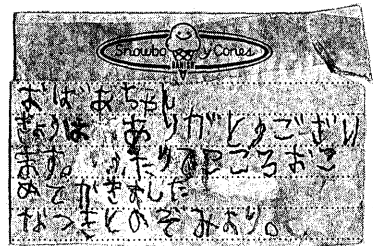 Snowboy Cones
おばあちゃん
きょうは、ありがとうございり
ます。ふたりでこころおこ
めてがきました
なつきとのぞみより。